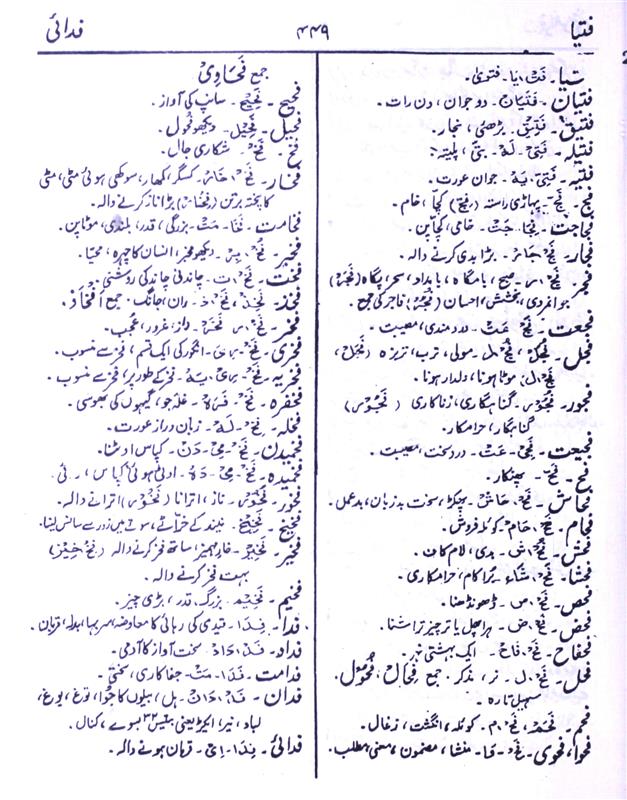 فتیا
۴۴۹
فدائی
تیا۔ فَتْ، یَا۔ فتویٰ۔
فتیان۔ فَتَیَانْ۔ دو جوان، دن رات۔
فتیق۔ فَتِیْقْ۔ بڑھئی، نجار۔
فتیلہ۔ فَتِیْ، لَہْ۔ بتّی، پلیتہ؛
فتیہ۔ فَتِیْ، یَہْ۔ جوان عورت۔
فج۔ فَجّ۔ پہاڑی راستہ (فِجّ) کچّا، خام۔
فجاجت۔ فِجَا، جَتْ۔ خامی، کچّا پن۔
فجار۔ فَجْ، جَارْ۔ بڑا بدی کرنے والہ۔
فجر۔ فَجْ، ر۔ صبح، بامگاہ، بامداد، سحر، پگاہ (فَجَرْ)
جوانمردی، بخشش، احسان (فُجُرْ) فاجر کی جمع۔
فجعت۔ فَجْ، عَتْ۔ دردمندی، مصیبت۔
فجل۔ فُجُلْ، فُجْ، ل۔ مولی، ترب، تریزہ (فَجَلْ،
فَجْ، لْ) موٹا ہونا، دلدار ہونا۔
فجور۔ فُجُوْرْ۔ گناہگاری، زناکاری (فَجُوْرْ)
گناہگار، حرامکار۔
فجیعت۔ فَجِیْ، عَتْ۔ درد سخت، مصیبت۔
فح۔ فَحّ۔ پھنکار۔
فحاش۔ فَحْ، حَاشْ۔ پھکڑ، سخت بدزبان، بدعمل۔
فحام۔ فَحْ، حَامْ۔ کوئلہ فروش۔
فحش۔ فُحْ، ش۔ بدی، لام کاف۔
فحشا۔ فَحْ، شَاء۔ بُرا کام، حرامکاری۔
فحص۔ فَحْ، ص۔ ڈھونڈھنا۔
فحض۔ فَحْ، ض۔ ہرا چھل یا تر چیز تراشنا۔
فحفاح۔ فَحْ، فَاحْ۔ ایک بہشتی نہر۔
فحل۔ فَحْ، ل۔ نر، مذکر۔ جمع فِحَالْ، فُحُوْلْ۔
سہیل تارہ۔
فحم۔ فَحَمْ، فَحْ، م۔ کوئلہ، انگشت، زغال۔
فحوا، فحوی۔ فَحْ، وَا۔ منشا، مضمون، معنی، مطلب۔
جمع فَحَاوِیْ۔
فحیح۔ فَحِیْح۔ سانپ کی آواز۔
فحیل۔ فَحِیْل۔ دیکھو فُحُول۔
فخ۔ فَخّ۔ شکاری جال۔
فخار۔ فَخْ، خَارْ۔ کسگر، کمھار، سوکھی ہوئی مٹی، مٹی
کا پختہ برتن (فِخَارْ) بڑا ناز کرنے والہ۔
فخامت۔ فَخَا، مَتْ۔ بزرگی، قدر، بلندی، موٹاپن۔
فخبر۔ فُخْ، بِرْ۔ دیکھو مخبر، انسان کا چہرہ، محیّا۔
فخت۔ فَخْ، ت۔ چاندنی چاند کی روشنی۔
فخذ۔ فَخِذْ، فَخْ، ذ۔ ران، جانگ۔ جمع اَفْخَاذْ۔
فخر۔ فَخْ، ر، فَخَرْ۔ واز، غرور، عُجب۔
فخری۔ فَخْ، رِیْ۔ انگور کی ایک قسم، فخر سے منسوب۔
فخریہ۔ فَخْ، رِیْ، یَہْ۔ فخر کے طور پر، فخر سے منسوب۔
فخفرہ۔ فَخْ، فَرَہْ۔ غلہ جو، گیہوں کی بھوسی۔
فخلہ۔ فِخْ، لَہْ۔ زبان دراز عورت۔
فخمیدن۔ فَخْ، مِیْ، دَنْ۔ کپاس اوٹنا۔
فخمیدہ۔ فَخْ، مِیْ، دَہْ۔ اوٹی ہوئی کپاس، رئی۔
فخور۔ فُخُوْرْ۔ ناز، اترانا (فَخُوْرْ) اترانے والہ۔
فخیخ۔ فَخِیْخْ۔ نیند کے خراٹے، سوتے میں زور سے سانس لینا۔
فخیر۔ فَخِیْرْ۔ خار مہمیز، ساتھ فخر کرنے والہ (فَخِّیْرْ)
بہت فخر کرنے والہ۔
فخیم۔ فَخِیْمْ۔ بزرگ، قدر، بڑی چیز۔
فدا۔ فِدَا۔ قیدی کی رہائی کا معاوضہ، سربہا، بدلہ، قربان۔
فداد۔ فَدْ، دَادْ۔ سخت آواز کا آدمی۔
فدامت۔ فَدَا، مَتْ۔ جفاکاری، سختی۔
فدان۔ فَدْ، دَانْ۔ ہل، بیلوں کا جوا، نوَغ، یوغ،
لباد، نیر، ایکڑ یعنی بتیس ۳۲ بسوے، کنال۔
فدائی۔ فِدَا، اِیْ۔ قربان ہونے والہ۔